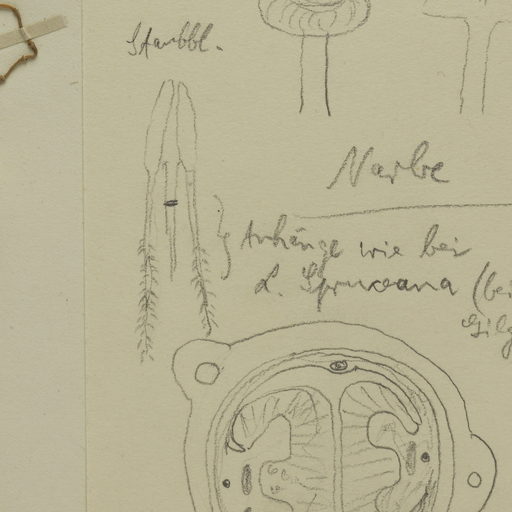 Staubbl.
Narbe
Anhänge wie bei
L. Spruceana (bei
Gilg